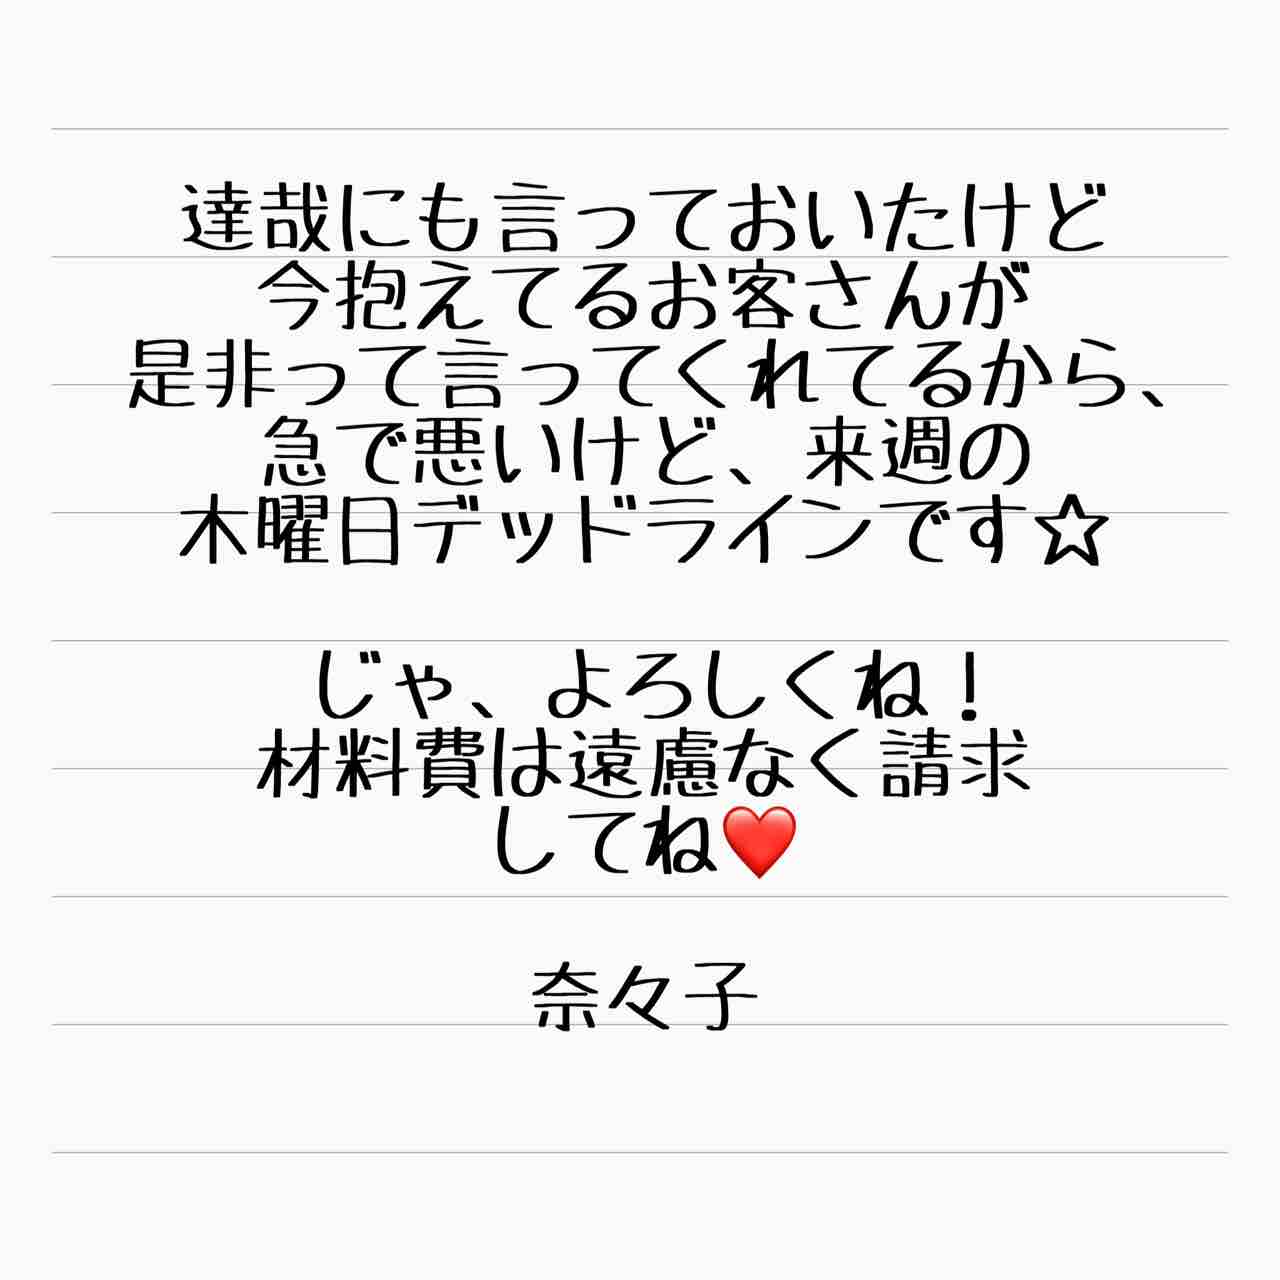 達哉にも言っておいたけど
今抱えてるお客さんが
是非って言ってくれてるから、
急で悪いけど、来週の
木曜日デッドラインです☆
じゃ、よろしくね！
材料費は遠慮なく請求
してね❤️
奈々子